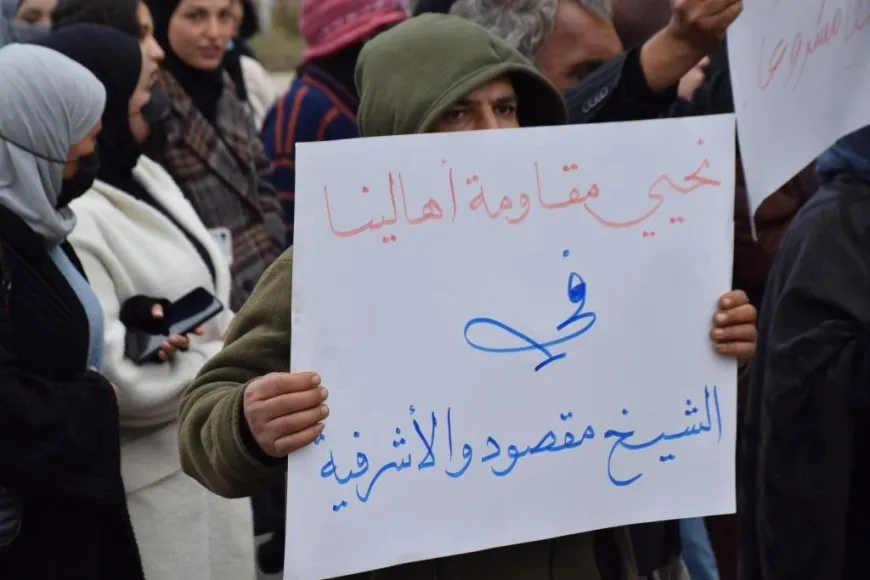 نحيي مقاومة أهالينا
في
الشيخ مقصود والأشرفية
مشروعا